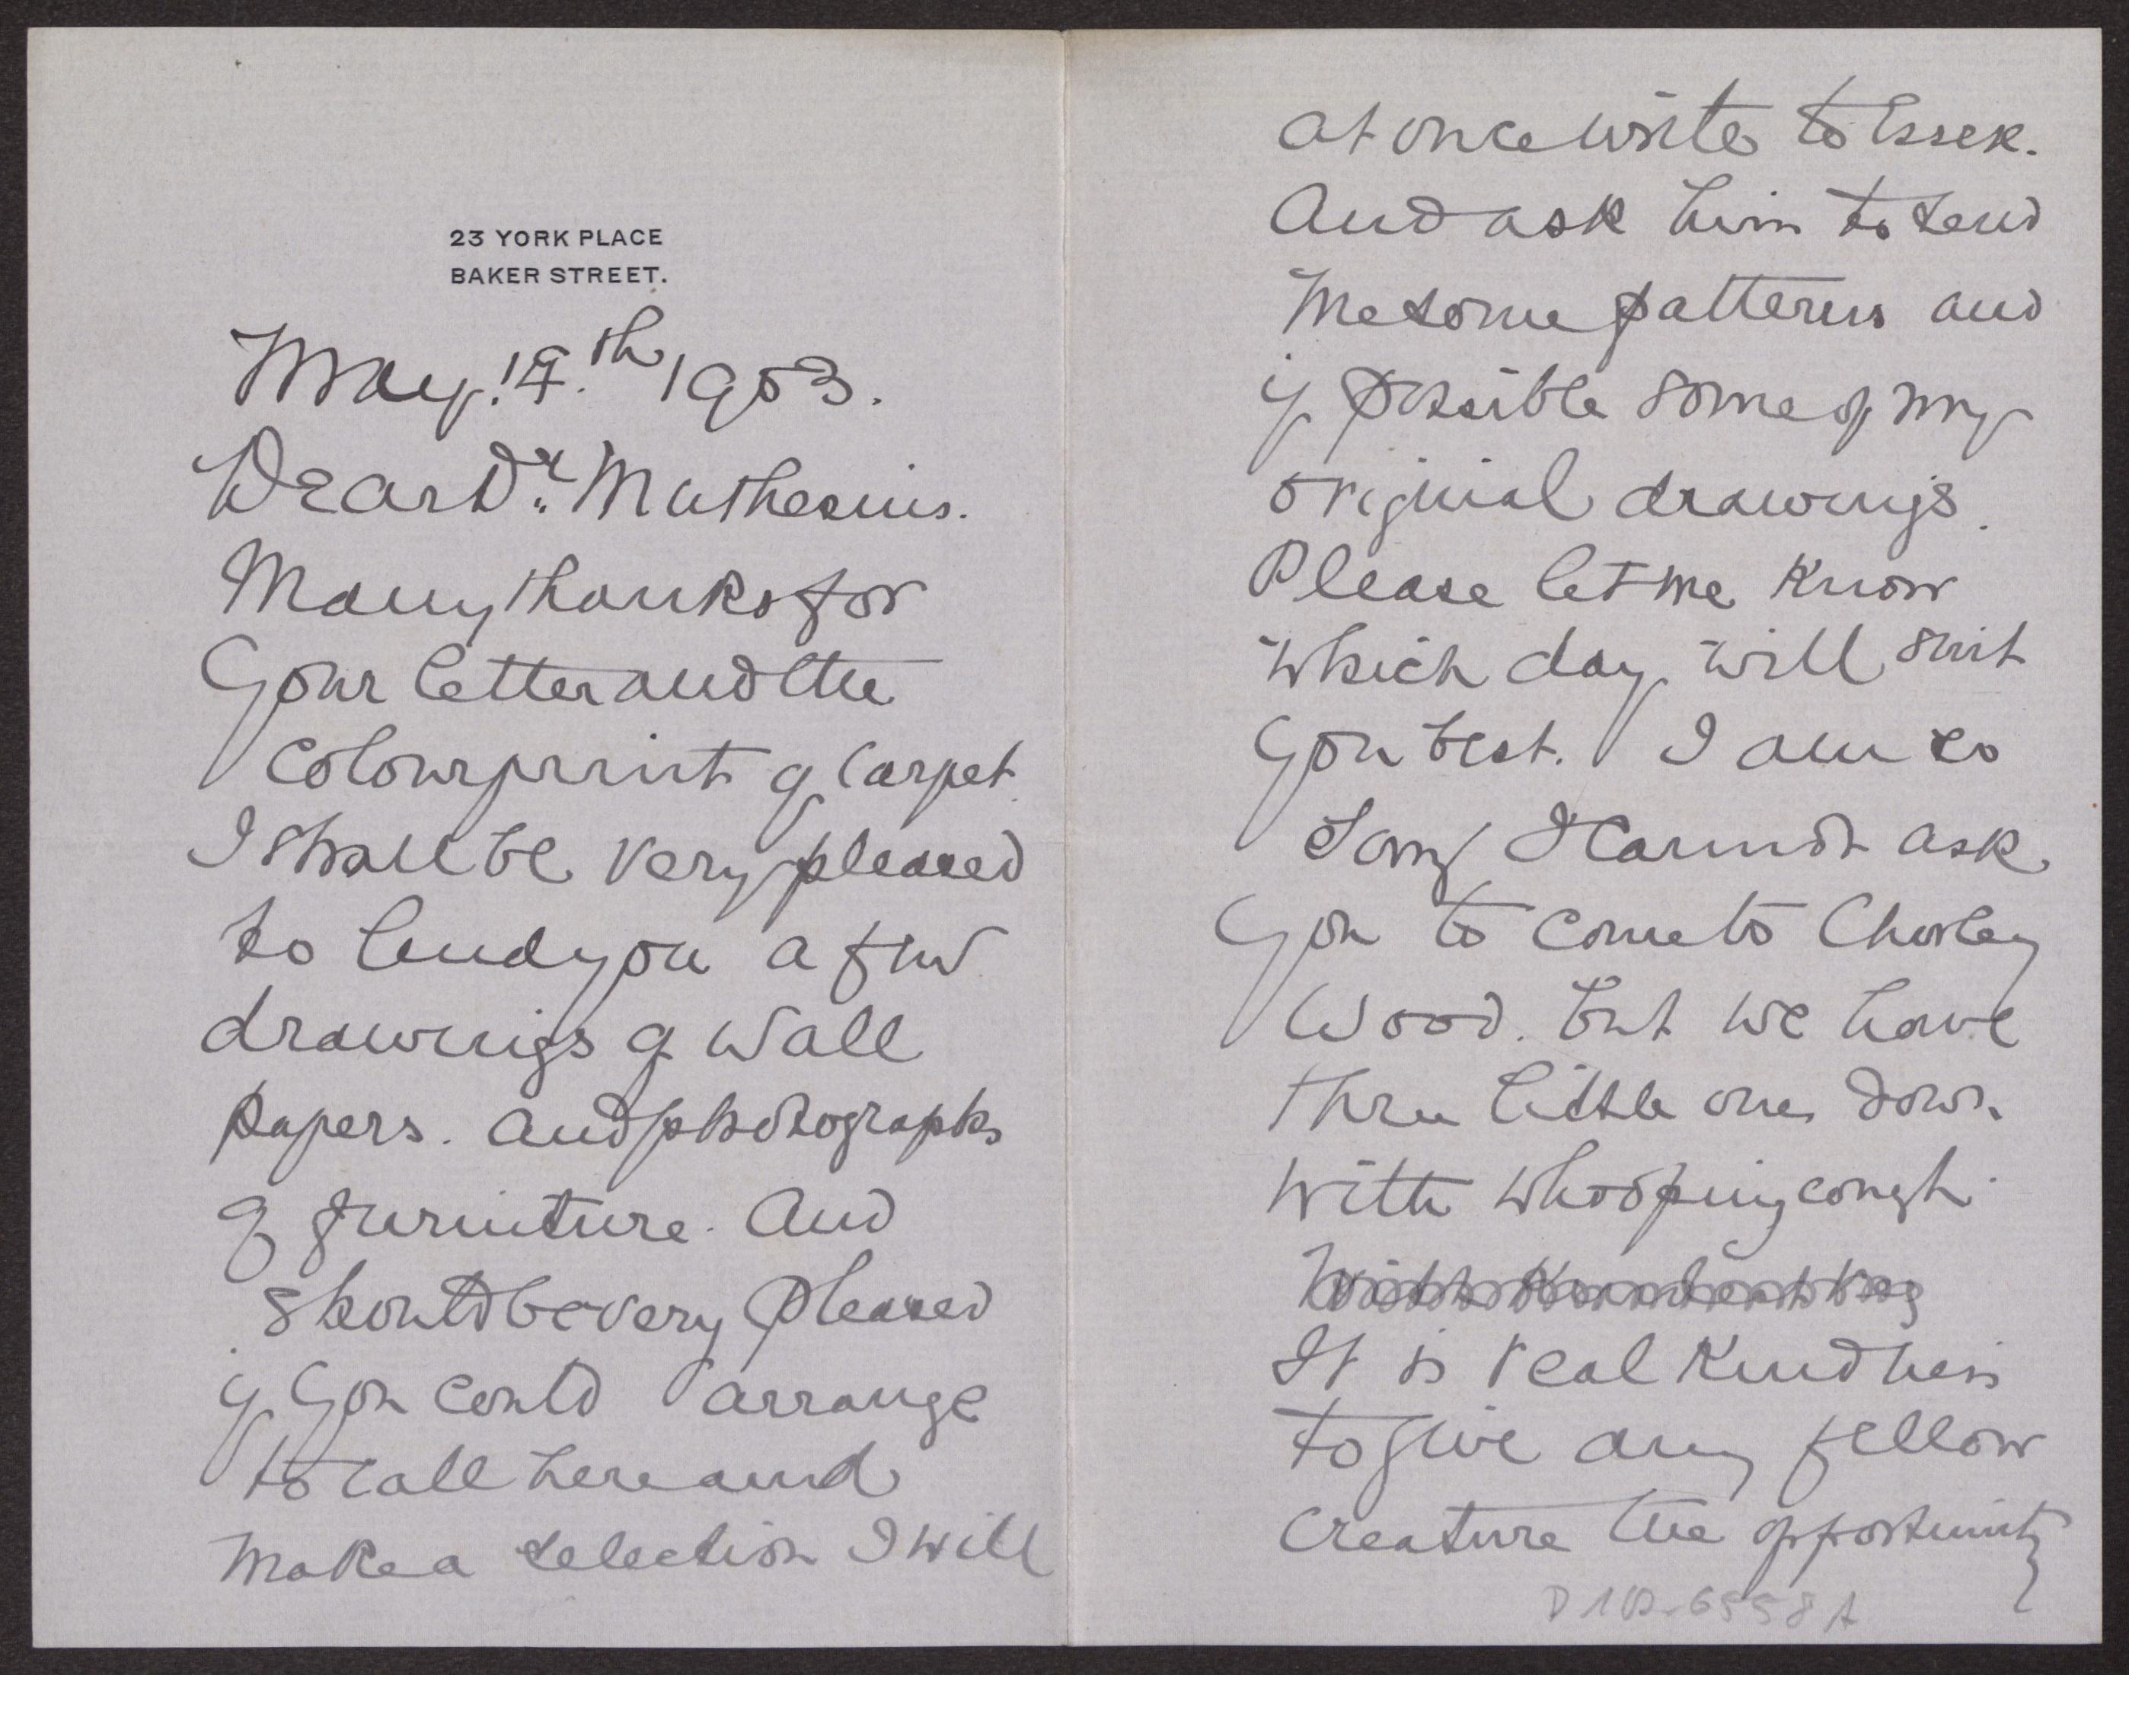 23 YORK PLACE
BAKER STREET.
May. 14.th 1903.
Dear Dr. Muthesius.
Many thanks for
your letter and the
colourprint of carpet.
I shall be very pleased
to lend you a few
drawings of wall
papers. and photographs
of furniture. And
should be very pleased
if you could arrange
to call here and
make a selection I will
at once write to Essex.
And ask him to send
me some patterns and
if possible some of my
original drawings.
Please let me know
which day will suit
you best. I am so
sorry I cannot ask
you to come to Chorley
Wood. but we have
three little ones down
with whooping cough.
It is real kindness
to give any fellow
creature the opportunity